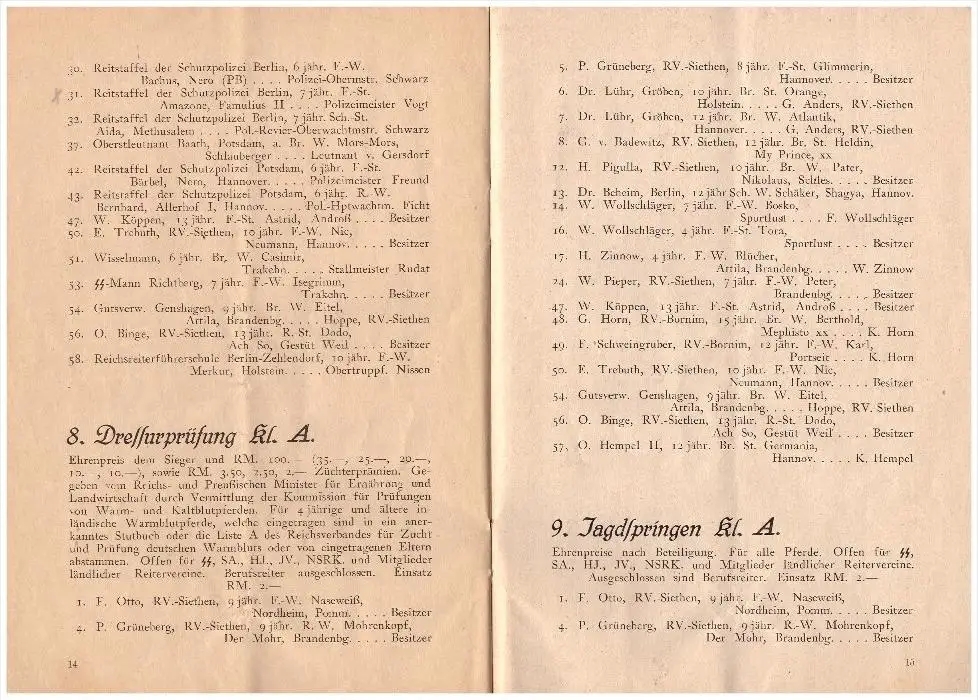 30. Reitstaffel der Schutzpolizei Berlin, 6 jähr. F.-W.
Bachus, Nero (PB) . . . . Polizei-Obermstr. Schwarz
31. Reitstaffel der Schutzpolizei Berlin, 7 jähr. F.-St.
Amazone, Famulius II . . . . Polizeimeister Vogt
32. Reitstaffel der Schutzpolizei Berlin, 7 jähr. Sch.-St.
Aida, Methusalem . . . . Pol.-Revier-Oberwachtmstr. Schwarz
37. Oberstleutnant Baath, Potsdam, a. Br. W. Mors-Mors,
Schlauberger . . . . Leutnant v. Gersdorf
42. Reitstaffel der Schutzpolizei Potsdam, 6 jähr. F.-St.
Bärbel, Nero, Hannover. . . . . Polizeimeister Freund
43. Reitstaffel der Schutzpolizei Potsdam, 6 jähr. R.-W.
Bernhard, Allerhof I, Hannov. . . . . Pol.-Hptwachtm. Ficht
47. W. Köppen, 13 jähr. F.-St. Astrid, Androß . . . . Besitzer
50. E. Trebuth, RV.-Siethen, 10 jähr. F.-W. Nic,
Neumann, Hannov. . . . . Besitzer
51. Wisselmann, 6 jähr. Br. W. Casimir,
Trakehn. . . . . Stallmeister Rudat
53. SS-Mann Richtberg, 7 jähr. F.-W. Isegrimm,
Trakehn. . . . . Besitzer
54. Gutsverw. Genshagen, 9 jähr. Br. W. Eitel,
Attila, Brandenbg. . . . . Hoppe, RV.-Siethen
56. O. Binge, RV.-Siethen, 13 jähr. R.-St. Dodo,
Ach So, Gestüt Weil . . . . Besitzer
58. Reichsreiterführerschule Berlin-Zehlendorf, 10 jähr. F.-W.
Merkur, Holstein. . . . . Obertruppf. Nissen
8. Dressurprüfung Kl. A.
Ehrenpreis dem Sieger und RM. 100.— (35.—, 25.—, 20.—,
10.—, 10.—), sowie RM. 3.50, 2.50, 2.— Züchterprämien. Ge-
geben vom Reichs- und Preußischen Minister für Ernährung und
Landwirtschaft durch Vermittlung der Kommission für Prüfungen
von Warm- und Kaltblutpferden. Für 4 jährige und ältere in-
ländische Warmblutpferde, welche eingetragen sind in ein aner-
kanntes Stutbuch oder die Liste A des Reichsverbandes für Zucht
und Prüfung deutschen Warmbluts oder von eingetragenen Eltern
abstammen. Offen für SS, SA., HJ., JV., NSRK. und Mitglieder
ländlicher Reitervereine. Berufsreiter ausgeschlossen. Einsatz
RM. 2.—
1. F. Otto, RV.-Siethen, 9 jähr. F.-W. Naseweiß,
Nordheim, Pomm. . . . . Besitzer
4. P. Grüneberg, RV.-Siethen, 9 jähr. R. W. Mohrenkopf,
Der Mohr, Brandenbg. . . . . Besitzer
14
5. P. Grüneberg, RV.-Siethen, 8 jähr. F.-St. Glimmerin,
Hannover. . . . . Besitzer
6. Dr. Lühr, Gröben, 10 jähr. Br. St. Orange,
Holstein. . . . . G. Anders, RV.-Siethen
7. Dr. Lühr, Gröben, 12 jähr. Br. W. Atlantik,
Hannover. . . . . G. Anders, RV.-Siethen
8. G. v. Badewitz, RV. Siethen, 12 jähr. Br. St. Heldin,
My Prince, xx
12. H. Pigulla, RV.-Siethen, 10 jähr. Br. W. Pater,
Nikolaus, Schles. . . . . Besitzer
13. Dr. Beheim, Berlin, 12 jähr Sch. W. Schäker, Shagya, Hannov.
14. W. Wollschläger, 7 jähr. F.-W. Bosko,
Sportlust . . . . F. Wollschläger
16. W. Wollschläger, 4 jähr. F.-St. Tora,
Sportlust . . . . Besitzer
17. H. Zinnow, 4 jähr. F. W. Blücher,
Attila, Brandenbg. . . . . W. Zinnow
24. W. Pieper, RV.-Siethen, 7 jähr. F.-W. Peter,
Brandenbg. . . . . Besitzer
47. W. Köppen, 13 jähr. F.-St. Astrid, Androß . . . . Besitzer
48. G. Horn, RV.-Bornim, 15 jähr. Br. W. Berthold,
Mephisto xx . . . . K. Horn
49. F. Schweingruber, RV.-Bornim, 12 jähr. F.-W. Karl,
Portseit . . . . K. Horn
50. E. Trebuth, RV.-Siethen, 10 jähr. F.-W. Nic,
Neumann, Hannov. . . . . Besitzer
54. Gutsverw. Genshagen, 9 jähr. Br. W. Eitel,
Attila, Brandenbg. . . . . Hoppe, RV. Siethen
56. O. Binge, RV.-Siethen, 13 jähr. R.-St. Dodo,
Ach So, Gestüt Weil . . . . Besitzer
57. O. Hempel II, 12 jähr. Br. St. Germania,
Hannov. . . . . K. Hempel
9. Jagdspringen Kl. A.
Ehrenpreise nach Beteiligung. Für alle Pferde. Offen für SS,
SA., HJ., JV., NSRK. und Mitglieder ländlicher Reitervereine.
Ausgeschlossen sind Berufsreiter. Einsatz RM. 2.—
1. F. Otto, RV. Siethen, 9 jähr. F.-W. Naseweiß,
Nordheim, Pomm. . . . . Besitzer
4. P. Grüneberg, RV.-Siethen, 9 jähr. R.-W. Mohrenkopf,
Der Mohr, Brandenbg. . . . . Besitzer
15